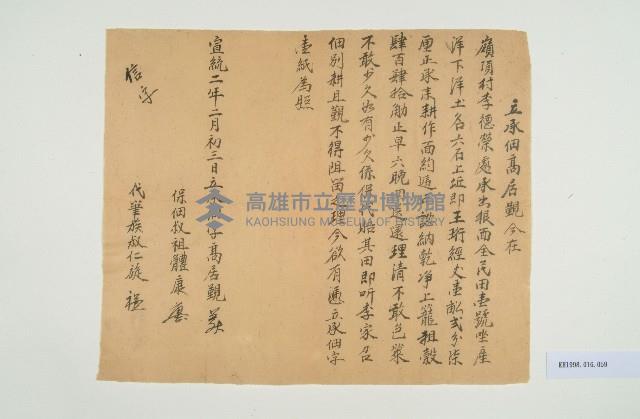 立承佃高居觀今在
嶺頂村李德榮處承出根面全民田壹號坐產
洋下洋土名六石上近即王珩經丈壹畝弍分柒
厘正承來耕作面約遞年認納乾净上籠租穀
肆百肆拾觔正早六晚四送還理清不敢邑粜
不敢少欠如有少欠係保代賠其田即听李家召
佃別耕且觀不得阻留之理今欲有憑立承佃字
壹紙為照
宣統二年二月初三日立承佃字高居觀
保佃叔祖體康
代筆族叔仁旋
信字
高雄市立歷史博物館
KAOHSIUNG MUSEUM OF HISTORY
KH1998.016.059